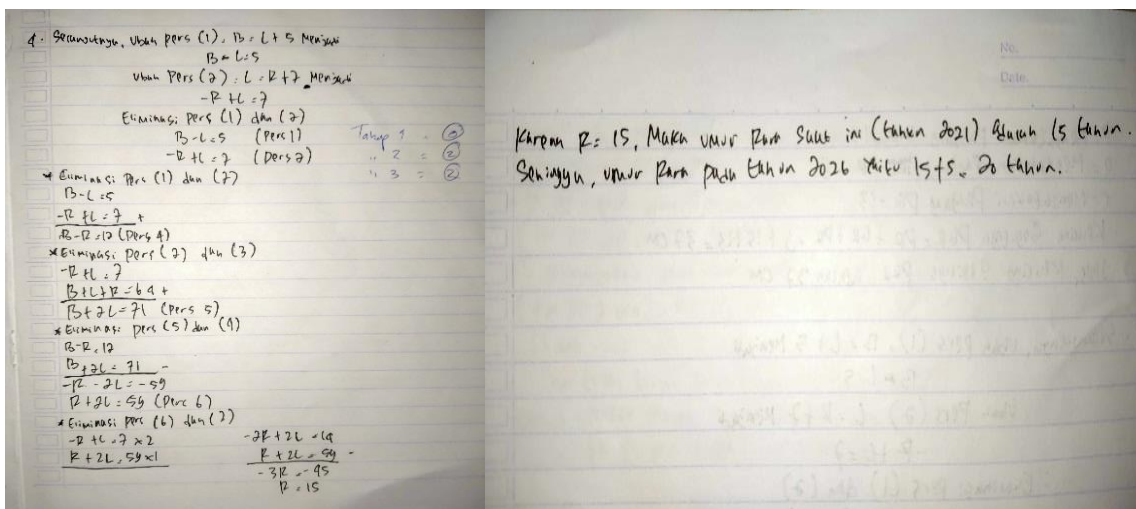 4. Selanjutnya, Ubah pers (1), B = L + 5 Menjadi
B - L = 5
Ubah Pers (2) : L = R + 7 Menjadi
-R + L = 7
Eliminasi Pers (1) dan (2)
B - L = 5 (Pers 1)
-R + L = 7 (Pers 2)
Tahap 1 =
" 2 = 2
" 3 = 2
* Eliminasi Pers (1) dan (2)
B - L = 5
-R + L = 7 +
B - R = 12 (Pers 4)
* Eliminasi pers (2) dan (3)
-R + L = 7
B + L + R = 64 +
B + 2L = 71 (Pers 5)
* Eliminasi pers (5) dan (4)
B - R = 12
B + 2L = 71 -
-R - 2L = -59
R + 2L = 59 (Pers 6)
* Eliminasi pers (6) dan (2)
-R + L = 7 x2
R + 2L = 59 x1
-2R + 2L = 14
R + 2L = 59 -
-3R = -45
R = 15
No.
Date.
Karena R = 15, Maka umur Rara Saat ini (tahun 2021) adalah 15 tahun.
Sehingga, umur Rara pada tahun 2026 Yaitu 15 + 5 = 20 tahun.